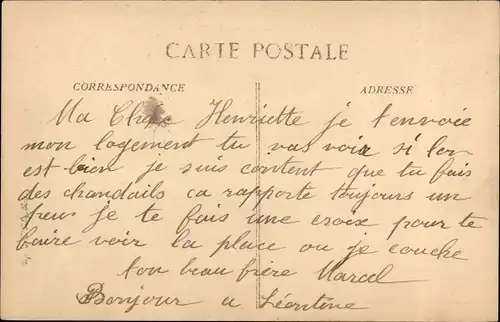 CARTE POSTALE
CORRESPONDANCE
ADRESSE
Ma Chère Henriette je t'envoie
mon logement tu vas voir si l'on
est bien je suis content que tu fais
des chandails ca rapporte toujours un
peu je te fais une croix pour te
faire voir la place ou je couche
ton beau frère Marcel
Bonjour a Léontine